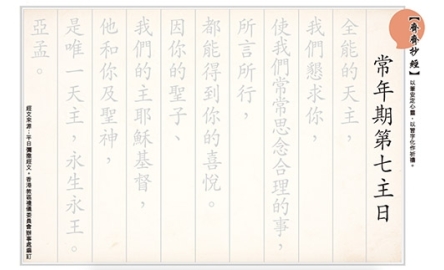 【齊齊抄經】
以筆安定心靈，以習字化作祈禱。
常年期第七主日
全能的天主，
我們懇求你，
使我們常常思念合理的事，
所言所行，
都能得到你的喜悅。
因你的聖子、
我們的主耶穌基督，
他和你及聖神，
是唯一天主，永生永王。
亞孟。
經文來源：平日彌撒經文，香港教區禮儀委員會辦事處編訂